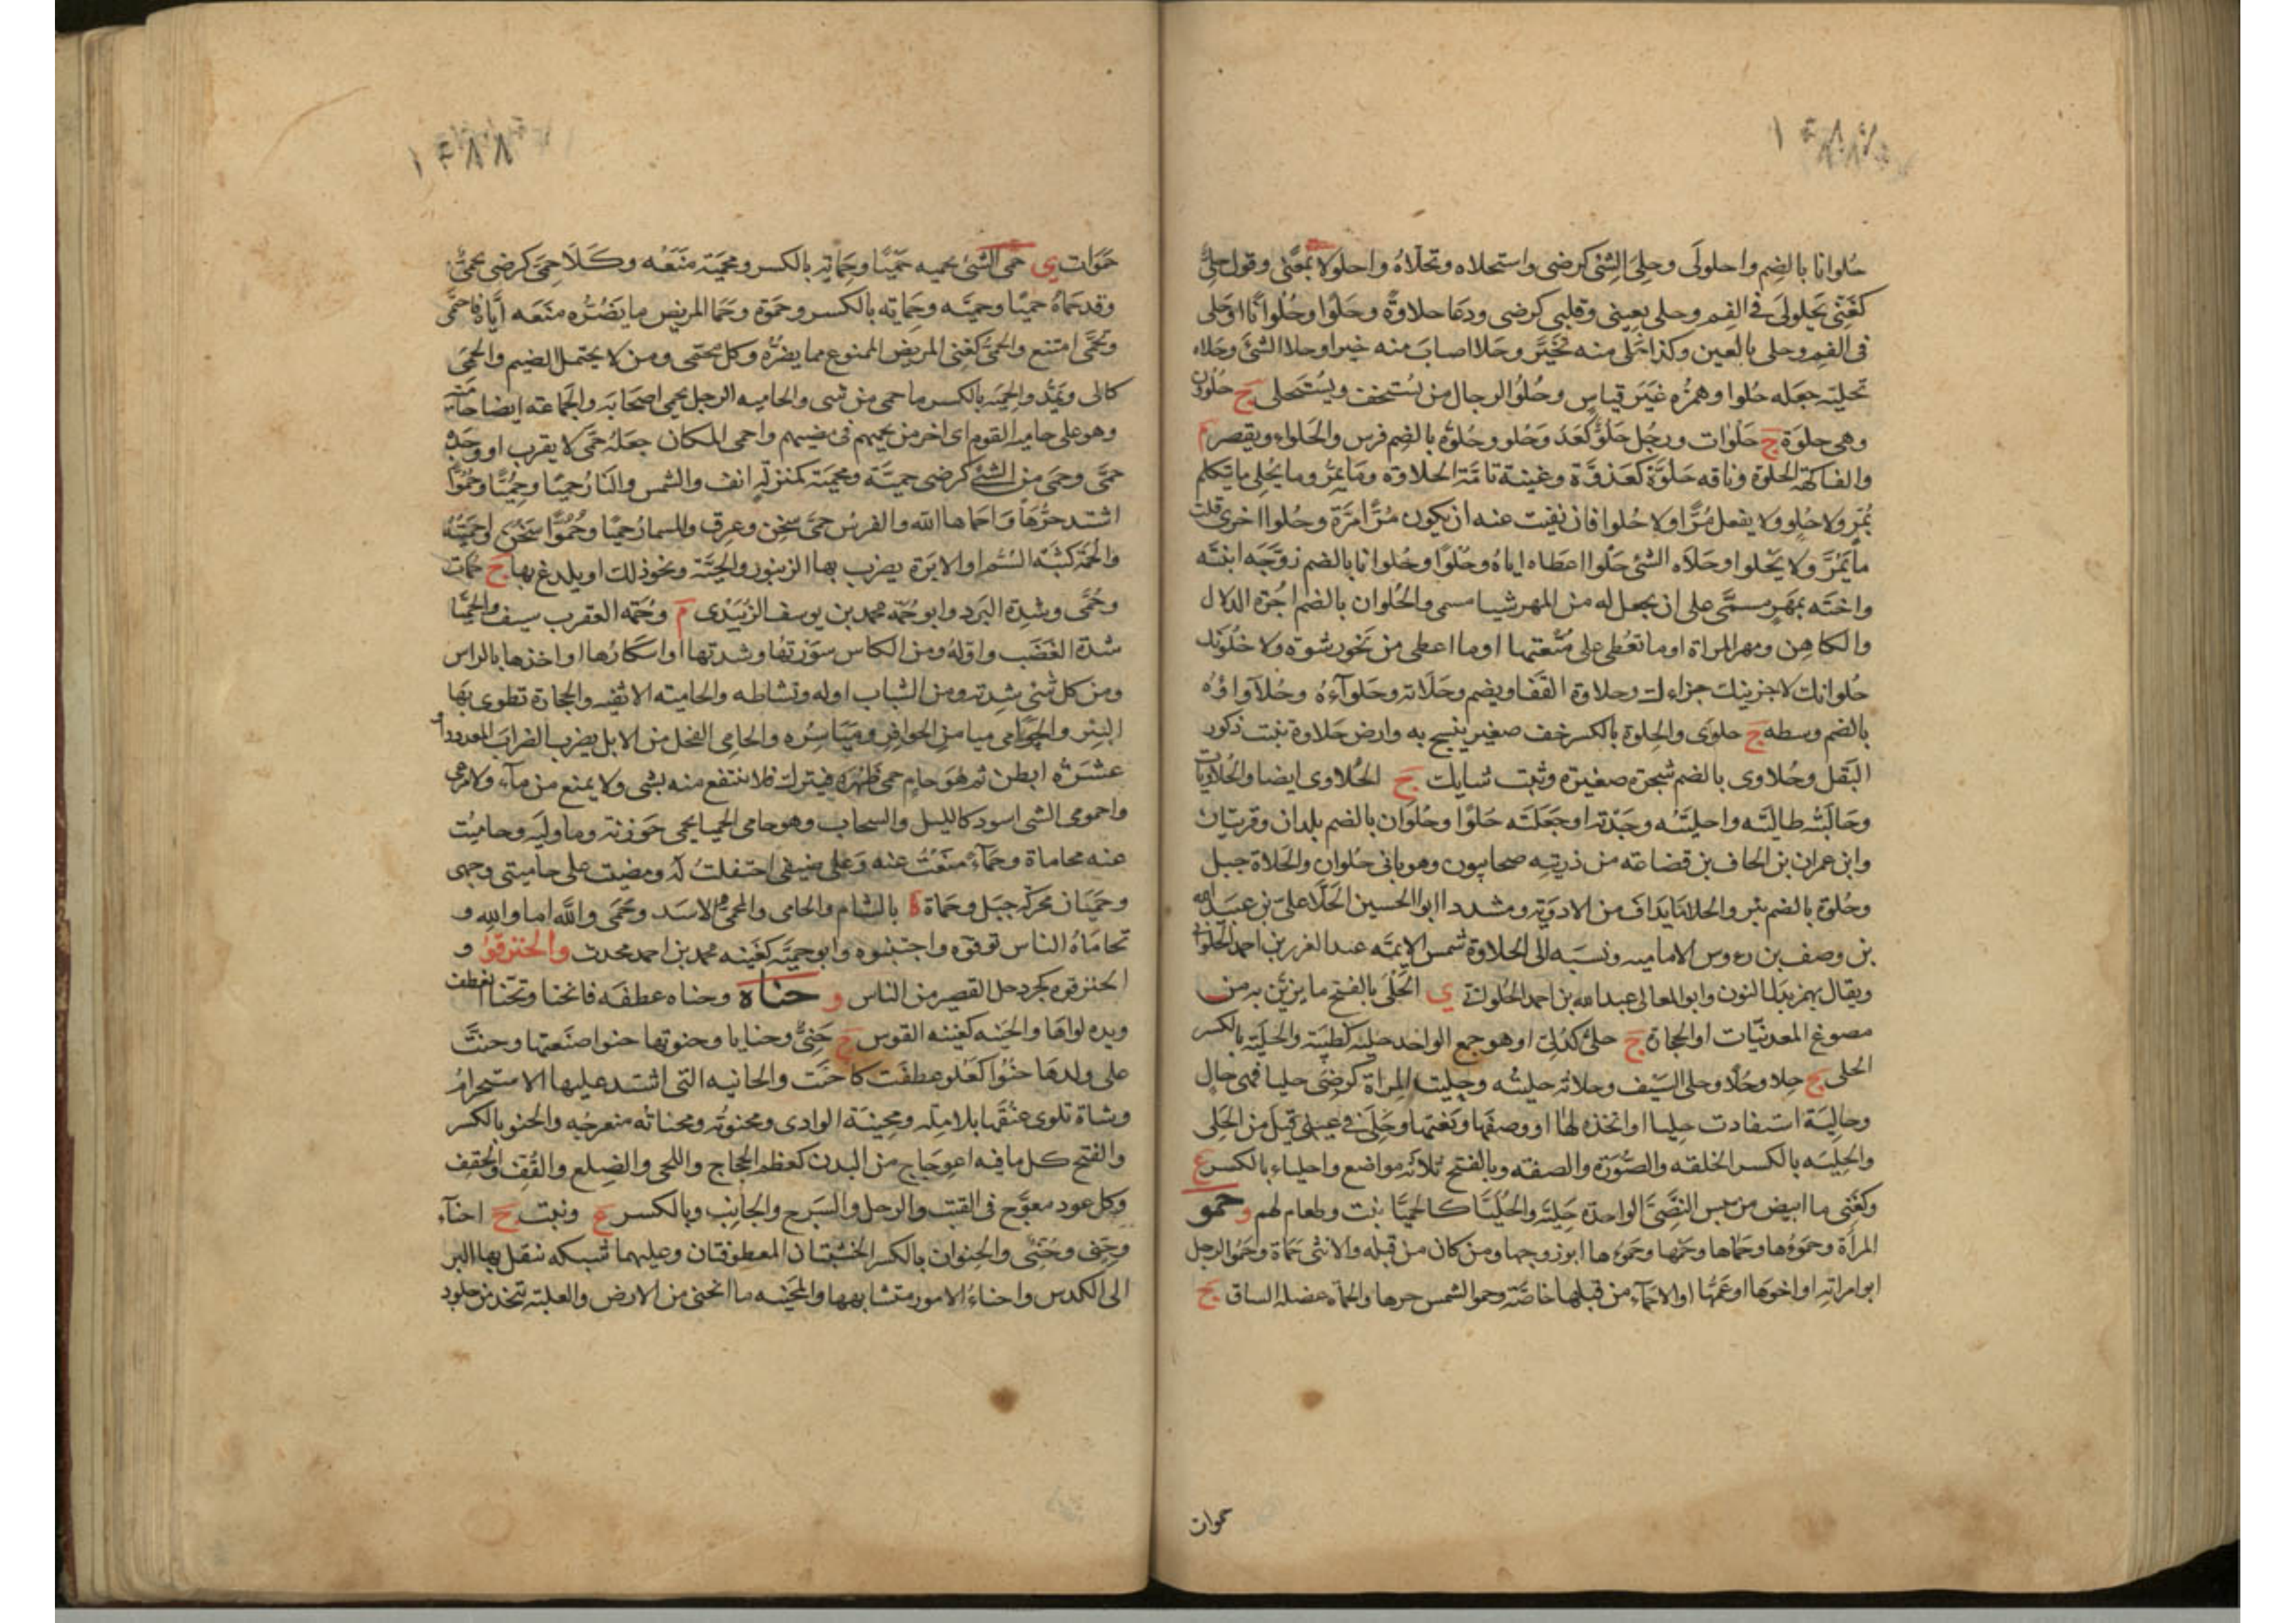 حُلوانا بالضم واحلولَى وحلِىَ الشئ كرضى واستحلاه وتحلّاهُ واحلولاهُ بمعنًى وقول حلِىٌّ
كغَنِىّ يَحلولى فى الفم وحلى بعينى وقلبى كرضى ودعا حلاوةً وحَلْوًا وحُلْوانًا او حَلى
فى الفم وحلى بالعين وكذا حَلى منه بخَيرٍ وحَلا اصابَ منه خيرا وحلا الشئَ وحَلاه
تحليَة جعله حُلوا وهمزُه غيَرَ قياسٍ وحُلوُ الرجال من يُستخف ويُستَحلى ج حُلْوُن
وهى حلوَة ج حَلْوات ورجُل حَلُوٌّ كعَدُوّ وحَلو وحُلوَة بالضم فرس والحَلواء ويقصر م
والفاكهة الحلوة وناقه حَلوَّة كعَذوَّة وغينة تامَّة الحلاوة ومَا يمِرُّ وما يُحْلى ما يتكلم
بُمرّ ولا حُلو ولا يفعل مُرًّا ولا حُلوا فان نفيت عنه ان يكون مُرًّا مَرَّة وحُلوا اخرى قلت
ما يَمَرّ ولا يَحْلو او حَلاَه الشئ حَلْوا اعطاه اياهُ وحُلوًا وحُلوانا بالضم زوَّجَه ابنتَه
واختَه بمهَرٍ مسمًّى على ان يجعل له من المهر شيا مسمى والحُلوان بالضم اجُرة الدلال
والكاهِن ومهر المراة او ما تعُطى على مُتْعتها او ما اعطى من نَحو رشوة ولا حلُوَنك
حُلوانك لاجزينك جزاءك وحلاوة القَفا ويضم وحَلَاته وحَلوآءهُ وحُلاَوَاؤُه
بالضم وسطه ج حلوَى والحِلوة بالكسر خف صغير ينسج به وارض حَلاوة تنبت ذكور
البَقل وحُلاوى بالضم شجرة صغيرة ونبت شايك ج الحُلاوى ايضا والحُلاويات
وحَالَيته طاليتَه واحليتَه وجَدْته او جَعَلتَه حَلوًا وحُلوان بالضم بلدان وقريتان
وابن عمران بن الحاف بن قضاعَه من ذريته صحابيون وهو بانى حُلوان والحَلاة جبل
وحُلوة بالضم بئر والحلا ما يدَاف من الادوية ومشددا ابو الحسين الحَلّا على بن عبيد الله
بن وصف بن رءوس الاماميه ونسبَه الى الحلاوة شمس الايمَّه عبد العزيز بن احمد الحَلْوانى
ويقال بهمز بَدَل النون وابو المعالى عبد الله بن احمد الحُلْوانى ى الحَلْىُ بالفتح ما يزيَّن به من
مصوغ المعدنيّات او الحجارة ج حلىٌّ كدُلىّ او هو جمع الواحد حَليَة كظبيَة والحليَة بالكسر
الحلى ج حِلا وحُلًا وحلى السَيف وحلاته حليتُه وحليت المراة كرضَى حليا فهى حالٍ
وحاليَة استفادت حليا او اتخذه لها او وصفَها ونعَتها وحَلِىَ فى عينى قيل من الحَلى
والحِليَه بالكسر الخلقه والصّورَة والصفته وبالفتح ثلاثة مواضع واحلياء بالكسر ع
وكغَنِى ما ابيض من يبس النَصِىّ الواحدة حَليَّة والحُليَّا كالحُميَّا نبت وطعام لهم و حمو
المراة وحَموُها وحَمَاها وحَمُها وحَموُءها ابو زوجها ومن كان من قبله والانثى حَماة وحَمُوا الرجل
ابو امراته او اخوها او عَمُّها او الاحمَآء من قبلها خاصَّة وحمو الشمس حرها والحَمَاه عضله الساق ج
حموات
حَمَوات ى حمَى الشئَ يحميه حَميًا وحِمايَة بالكسر ومحميَة منَعَه وكَلَا حِمًى كرضى يحمى
وقد حَماهُ حميًا وحميَه وحِمايَه بالكسر وحَموَة وحَمَا المريض ما يَضُرُّه منَعَه ايّاه فاحتمى
وتحَمَّى امتنع والحمىُّ كغنى المريض الممنوع مما يضرُّه وكل محتمى ومن لا يحتمل الضيم والحِمَى
كالى ويَمَّد والحِميَه بالكسر ما حمى من شى والحاميه الرجل يحمى اصحَابَه والجماعه ايضا حَامية
وهو على حاميَه القوم اى اخر من يحميهم فى مضيهم واحمى المكان جعَلهُ حِمًى لا يقرب او وجدَه
حمًى وحمَى من الشئ كرضى حميَّة ومحميَة كمنزلَة انف والشمس والنّارُ حميًا وحُميًّا وحُمُوًّا
اشتد حرُّها واحماها الله والفرَسُ حمًى سخِن وعرق والمسمار حميًا وحُمُوًّا سَخُنَ واحميتُهُ
والحُمَة كثبَة السّم او الابرَة يضرب بها الزنبور والحيَّة ونحو ذلك او يلدغ بها ج حُمات
وحُمًى وشدة البَرد وابو حُمَه محمد بن يوسف الزَبَيْدى م وحُمَه العقرب سيف والحُميَّا
شدّة الغَضَب واوّلهُ ومن الكاس سَورَتها وشدتها او اسكارُها او اخذها بالراس
ومن كل شئ شدته ومن الشباب اوله ونشاطه والحاميَة الاثفيه والحجارة تطوى بَها
البئِر والحوامى ميامن الحوافر ومَياسِرُه والحامى الفحل من الابل يضرب الضرابَ المعدود او
عشَرَة ابطن ثم هوَ حامٍ حمى ظهره فيترك فلا ينتفع منه بشى ولا يمنع من مآء ولا مرعى
واحمومى الشى اسود كالليل والسحاب وهو حامى الحميا يحمى حَوزته وما وليَه وحاميُت
عنه محاماة وحِمآء مَنَعْتُ عنه وَعلى ضيفى احتفلتُ لَه ومضيت على حاميتى وجهى
وحَميَان محركة جبَل وحَماة ة بالشام والحامى والمحمىُّ الاسَد وحَمَى والله اما والله و
تحامَاهُ الناس توقوه واجتنبوه وابو حميَّة كغَينه محمد بن احمد محدث والحنزقوُ و
الحنزقوة كجردحل القصير من الناس و حناهُ وحناه عطفَه فانحنا وتحَنا انعطف
ويده لواهَا والحَنيه كغينه القوس ج حَنِىٌّ وحنايا وحنوتها حنوا صنَعتها وحنت
على ولدهَا حنُوًّا كعُلو عطفَت كاحنَت والحانيه التى اشتد عليها الاستحرامُ
وشاة تلوى عنُقَها بلا علَّة ومحنيَة الوادى ومحنوتُه ومحناتُه منعرجُه والحنو بالكسر
والفتح كل ما فيه اعوِجَاج من البدن كعظم الحجاج واللحى والضلع والقُفّ والحِقف
وكل عود معوَّج فى القتب والرحل والسَرج والجانِب وبالكسر ع ونبت ج احنآء
وحِنىّ وحُنىّ والحنوان بالكسر الخشبَتان المعطوفتان وعليهما شبكه ننقل بها البر
الى الكدس واحناءُ الامور متشابهها والمحنَيه ما انحنى من الارض والعلبَة تتخذ من جلود